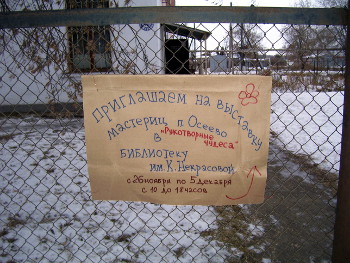 ПРИГЛАШАЕМ НА ВЫСТАВКУ
МАСТЕРИЦ п. Осеево
"Рукотворные чудеса"
В БИБЛИОТЕКУ
им. К. Некрасовой
с 26 ноября по 5 декабря
с 10 до 18 часов